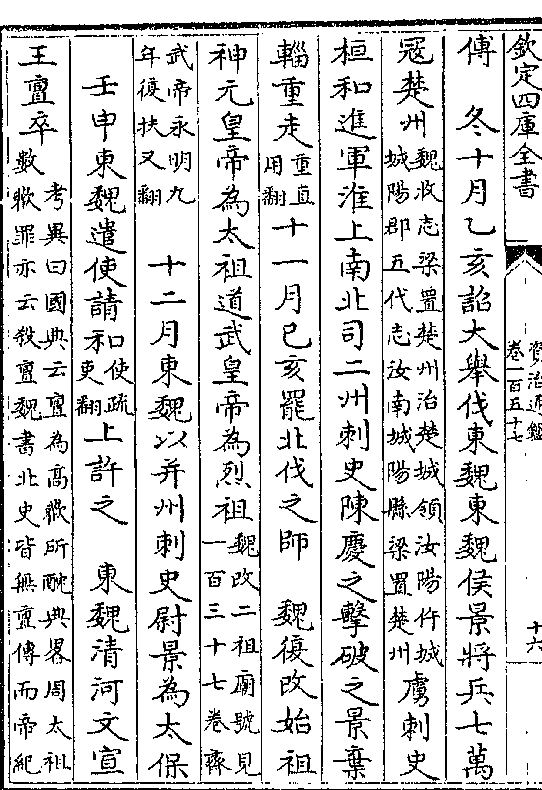 欽定四庫全書
資治通鑑
卷一百五十七
十六
傳　冬十月乙亥詔大舉伐東魏東魏侯景將兵七萬
寇楚州魏收志梁置楚州治楚城領汝陽仵城
城陽郡五代志汝南城陽縣梁置楚州虜刺史
桓和進軍淮上南北司二州刺史陳慶之擊破之景棄
輜重走重直
用翻十一月己亥罷北伐之師　魏復改始祖
神元皇帝為太祖道武皇帝為烈祖魏改二祖廟號見
一百三十七卷齊
武帝永明九
年復扶又翻　十二月東魏以并州刺史尉景為太保
壬申東魏遣使請和使疏
吏翻上許之　東魏清河文宣
王亶卒考異曰國典云亶為高歡所酖典畧周太祖
數歡罪亦云殺亶魏書北史皆無亶傳而帝紀